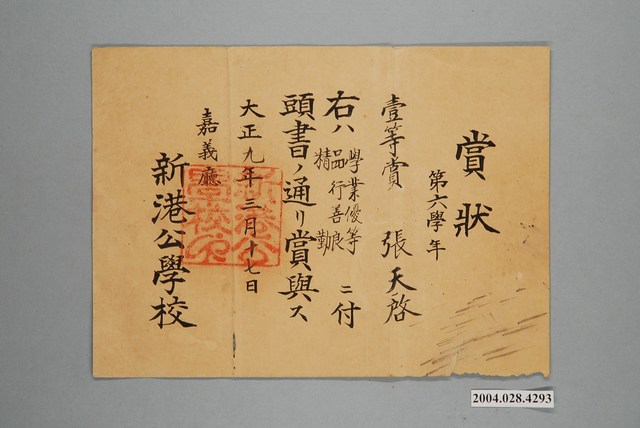 賞狀
第六學年
壹等賞 張天啓
右ハ學業優等
品行善良
精勤
ニ付
頭書ノ通リ賞與ス
大正九年三月十七日
嘉義廳
新港公學校
新港公
學校之
2004.028.4293